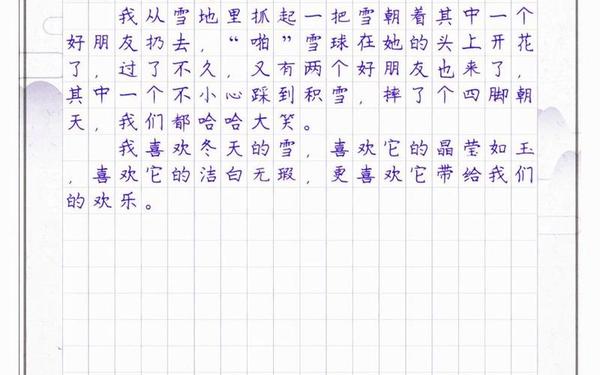 我从雪地里抓起一把雪朝着其中一个
好朋友扔去，“啪”雪球在她的头上开花
了，过了不久，又有两个好朋友也来了，
其中一个不小心踩到积雪，摔了个四脚朝
天，我们都哈哈大笑。
我喜欢冬天的雪，喜欢它的晶莹如玉
，喜欢它的洁白无瑕，更喜欢它带给我们
的欢乐。